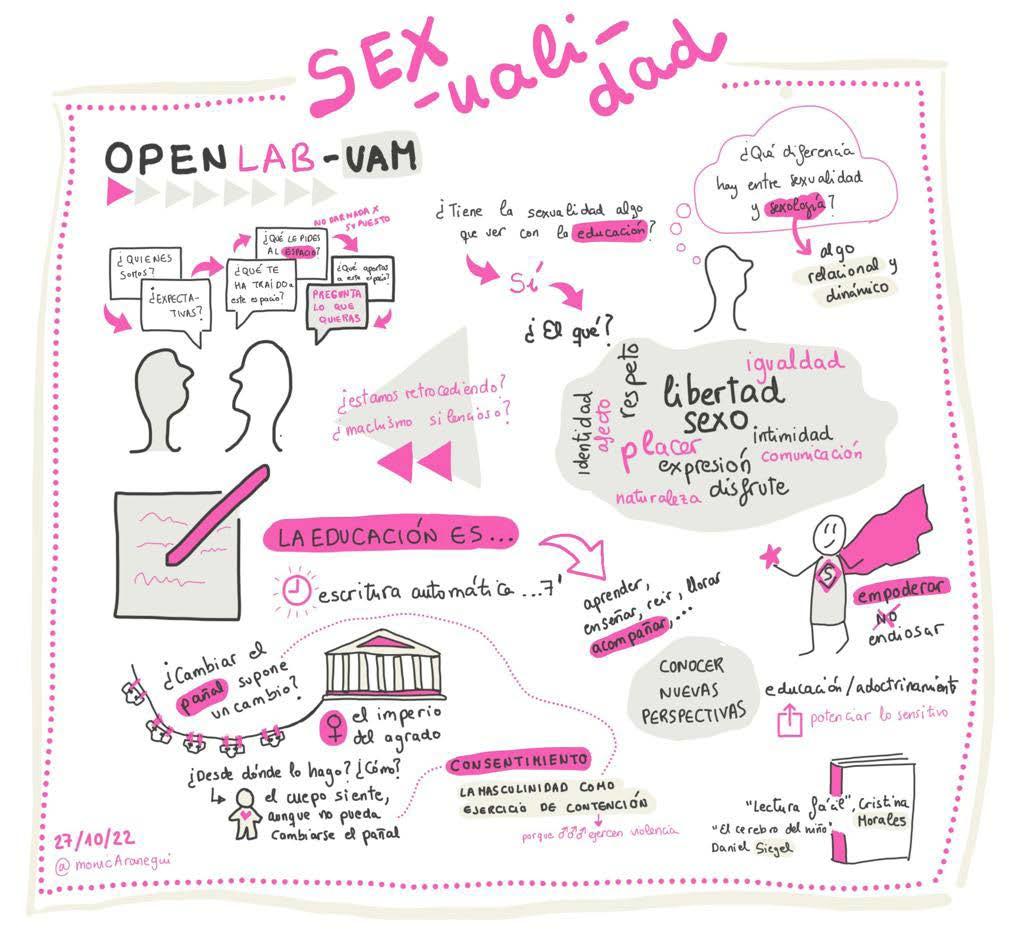 SEX
-uali-
dad
OPENLAB-UAM
¿QUIENES
SOMOS?
¿EXPECTA-
TIVAS?
¿QUÉ TE
HA TRAÍDO a
este espacio?
¿QUÉ LE PIDES
AL ESPACIO?
NO DAR NADA X
SUPUESTO
¿Qué aportas
a este espacio?
PREGUNTA
LO QUE
QUIERAS
¿Tiene la sexualidad algo
que ver con la educación?
Sí
¿El qué?
¿Qué diferencia
hay entre sexualidad
y sexología?
algo
relacional y
dinámico
¿estamos retrocediendo?
¿machismo silencioso?
identidad
afecto
respeto
igualdad
libertad
sexo
placer
intimidad
expresión
comunicación
naturaleza
disfrute
LA EDUCACIÓN ES...
escritura automática...7'
aprender,
enseñar, reir, llorar
acompañar,...
S
empoderar
NO
endiosar
¿Cambiar el
pañal supone
un cambio?
el imperio
del agrado
CONOCER
NUEVAS
PERSPECTIVAS
educación/adoctrinamiento
potenciar lo sensitivo
¿Desde dónde lo hago? ¿Cómo?
el cuepo siente,
aunque no pueda
cambiarse el pañal
CONSENTIMIENTO
LA MASCULINIDAD COMO
EJERCICIO DE CONTENCIÓN
porque ♂♂♂ ejercen violencia
"Lectura fácil", Cristina
Morales
"El cerebro del niño"
Daniel Siegel
27/10/22
@monicAranegui